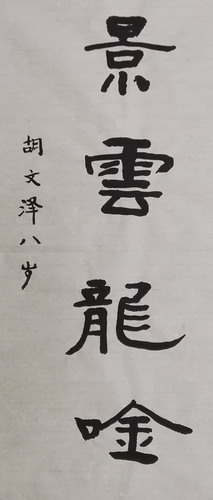 景雲龍唫
胡文泽八岁